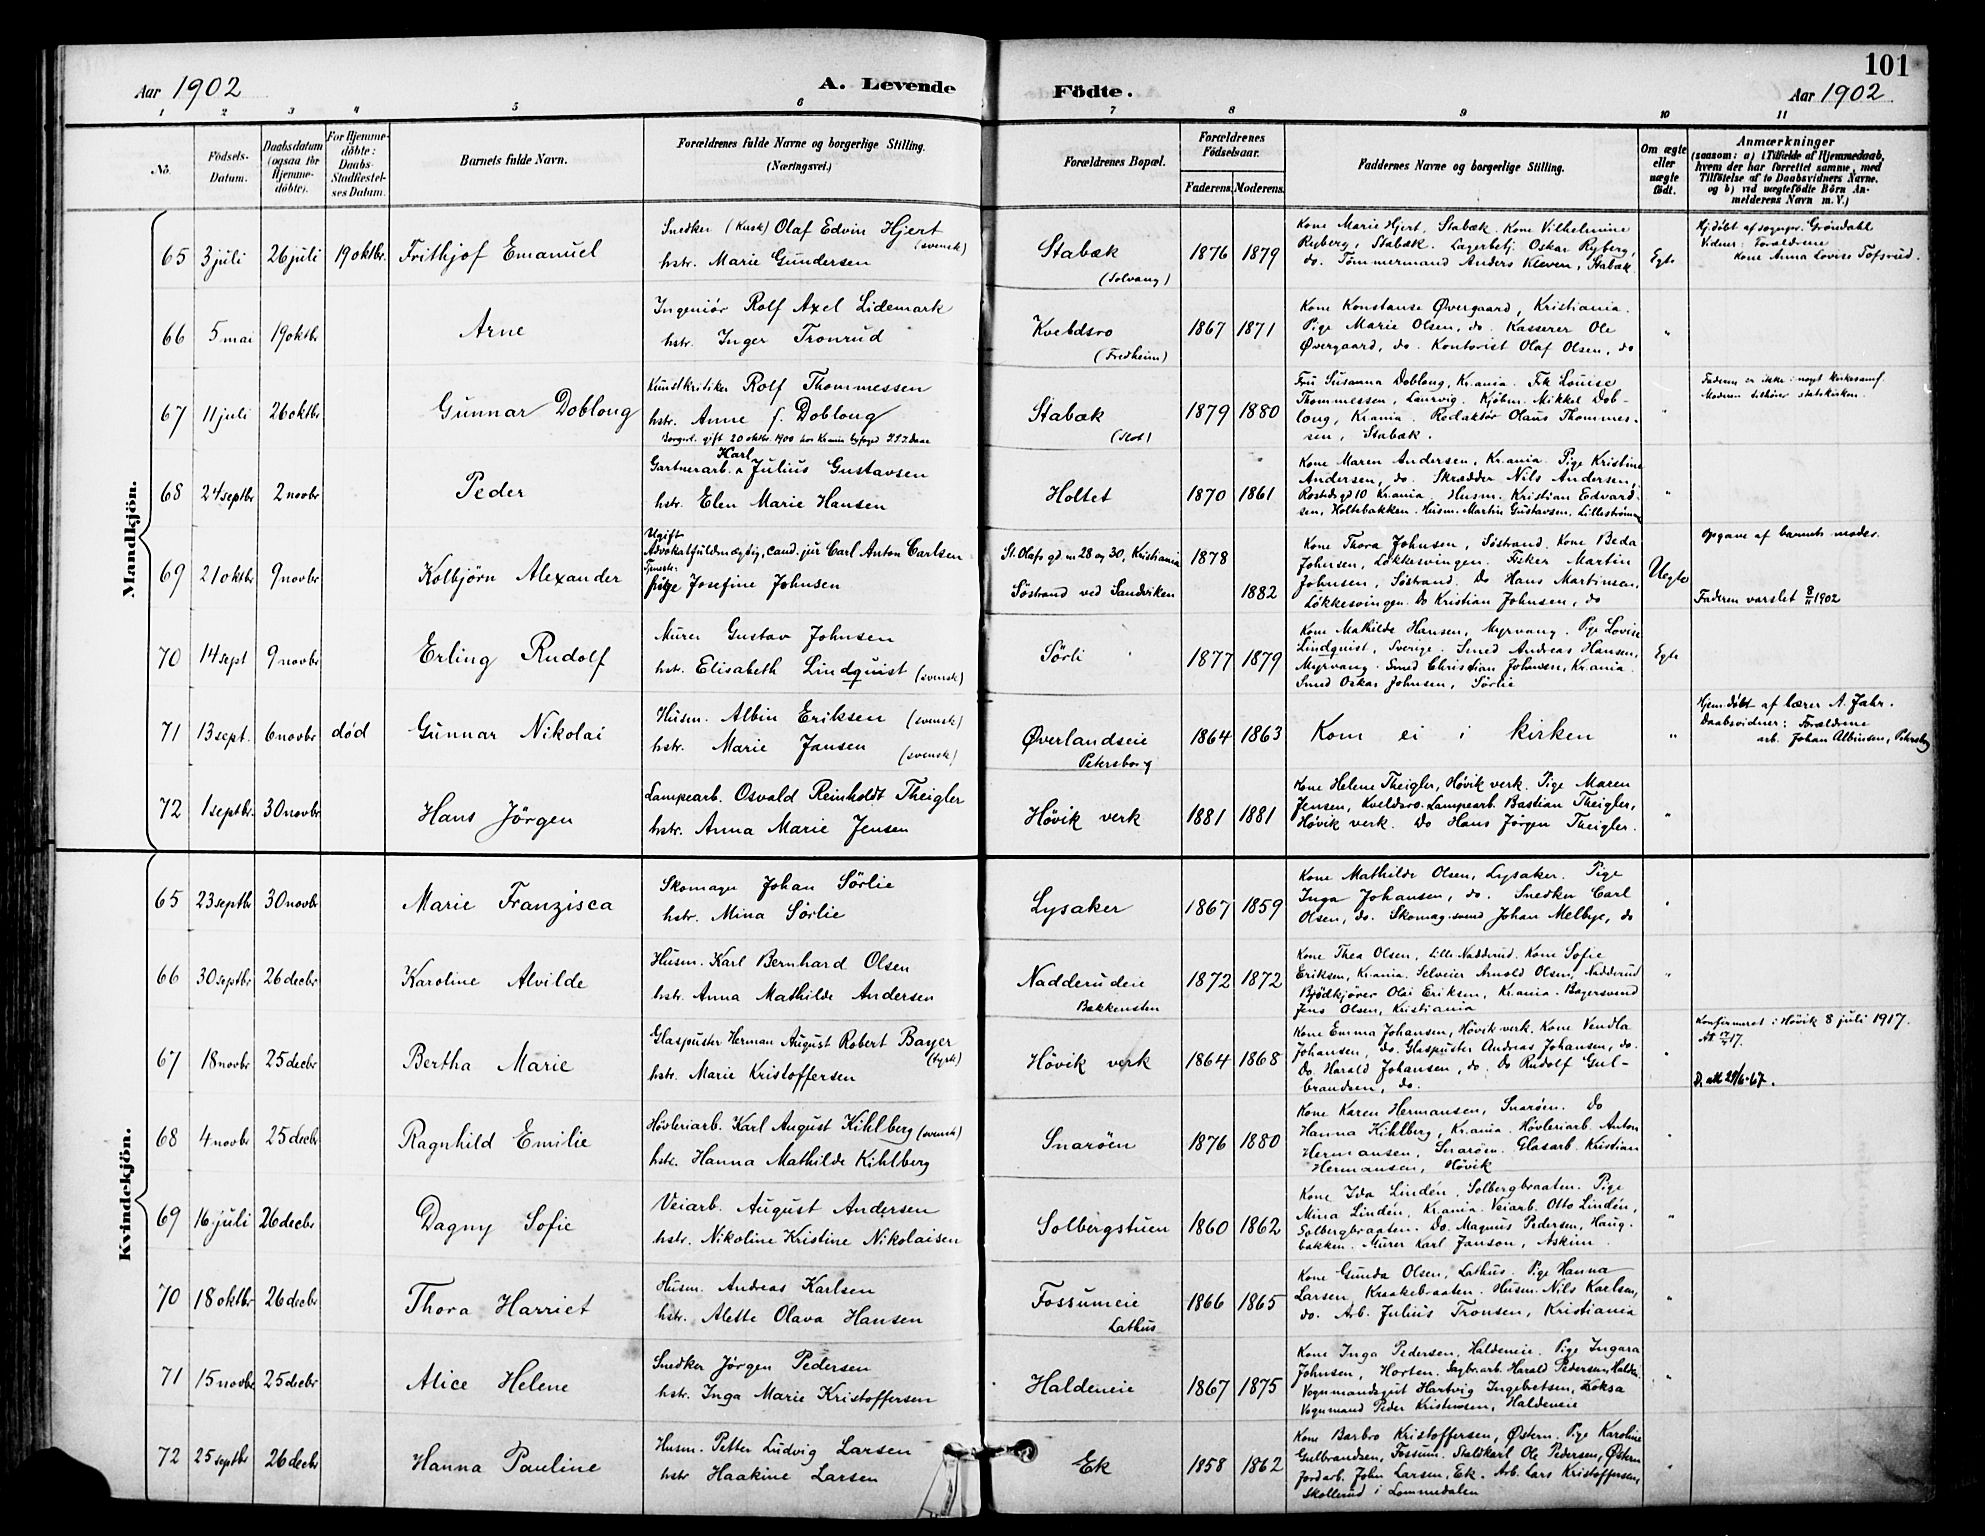 101
Aar 1902
A. Levende
Födte.
Aar 1902
1 2 3 4 5 6 7 8 9 10 11
No.
Födsels-Datum.
Daabsdatum (ogsaa for Hjemme-döbte).
For Hjemme-döbte: Daabs-Stadfæstel-ses Datum.
Barnets fulde Navn.
Forældrenes fulde Navne og borgerlige Stilling.
(Næringsvei.)
Forældrenes Bopæl.
Forældrenes Födselsaar.
Faderens. Moderens.
Faddernes Navne og borgerlige Stilling.
Om ægte eller uægte födt.
Anmærkninger
(saasom: a) i Tilfælde af Hjemmedaab,
hvem der har forrettet samme, med
Tilföielse af to Daabsvidners Navne,
og b) ved uægtefödte Börn An-
melderens Navn m. V.)
Mandkjön.
65 3 juli 26 juli 19 oktbr. Frithjof Emanuel
Snedker (Kusk) Olaf Edvin Hjert (svensk)
hstr. Marie Gundersen
Stabæk
(Solvang)
1876 1879
Kone Marie Hjert, Stabæk. Kone Vilhelmine
Ryberg, Stabæk. Lagerbetj. Oskar Ryberg,
do. Tømmermand Anders Kleven, Stabæk.
Egte
Hj.døbt af sognepr. Grøndahl
Vidner: Forældrene
Kone Anna Lovise Tofsrud.
66 5 mai 19 oktbr Arne
Ingeniør Rolf Axel Lidemark
hstr. Inger Tronrud
Kveldsro
(Fredheim)
1867 1871
Kone Konstanse Øvergaard, Kristiania.
Pige Marie Olsen, do. Kasserer Ole
Øvergaard, do. Kontorist Olaf Olsen, do
"
67 11 juli 26 oktbr Gunnar Doblong
Kunstkritiker Rolf Thommessen
hstr. Anne f. Doblong
Borgerl. gift 20 oktbr. 1900 hos Krania byfoged
Stabæk
(Slot)
1879 1880
Fru Susanna Doblong, Kr.ania. Frk Louise
Thommessen, Laurvig. Kjøbm. Mikkel Dob-
long, Kr.ania. Redaktør Olaus Thommes-
sen, Stabæk.
"
Faderen er ikke i noget kirkesamf.
Moderen tilhører statskirken.
68 24 septbr 2 novbr Peder
Gartnerarb. Karl Julius Gustavsen
hstr. Elen Marie Hansen
Holtet
1870 1861
Kone Maren Andersen, Kr.ania. Pige Kristine
Andersen, do. Skrædder Nils Andersen,
10 Kr.ania. Husm. Kristian Edvard-
sen, Holtebakken. Husm. Martin Gustavsen, Lillestrømm
"
69 21 oktbr 9 novbr Kolbjörn Alexander
Ugift
Advokatfuldmægtig, cand. jur Carl Anton Carlsen
Tjeneste-
pige Josefine Johnsen
St. Olafs gd. 28 og 30, Kristiania
Söstrand ved Sandviken
1878
1882
Kone Thora Johnsen, Söstrand. Kone Beda
Johnsen, Løkkesvingen. Fisker Martin
Johnsen, Söstrand. Do Hans Martinsen,
Løkkesvingen. Do Kristian Johnsen, do
Uegte
Opgave af barnets moder.
Faderen varslet 8/11 1902
70 14 sept 9 novbr Erling Rudolf
Murer Gustav Johnsen
hstr. Elisabeth Lindquist (svensk)
Sörli
1877 1879
Kone Mathilde Hansen, Myrvang. Pige Lovise
Lindquist, Sverige. Smed Andreas Hansen,
Myrvang. Smed Christian Johnsen, Kr.ania.
Smed Oskar Johnsen, Sörlie
Egte
71 13 sept. 6 novbr död Gunnar Nikolai
Husm. Albin Eriksen (svensk)
hstr. Marie Jansen (svensk)
Øverlandseie
Petersborg
1864 1863
Kom ei i kirken
"
Hjemdøbt af lærer A. Jahr.
Daabsvidner: Forældrene
arb. Johan Albinsen, Petersborg
72 1 septbr. 30 novbr Hans Jörgen
Lampearb. Osvald Reinholdt Theigler
hstr. Anna Marie Jensen
Høvik verk
1881 1881
Kone Helene Theigler, Høvik verk. Pige Maren
Jensen, Kveldsro. Lampearb. Bastian Theigler,
Høvik verk. Do Hans Jørgen Theigler.
"
Kvindekjön.
65 23 septbr 30 novbr Marie Franzisca
Skomager Johan Sörlie
hstr. Mina Sörlie
Lysaker
1867 1859
Kone Mathilde Olsen, Lysaker. Pige
Inga Johansen, do. Snedker Carl
Olsen, do. Skomag.svend Johan Melbye, do
"
66 30 septbr 26 decbr Karoline Alvilde
Husm. Karl Bernhard Olsen
hstr. Anna Mathilde Andersen
Nadderudeie
Bakkensten
1872 1872
Kone Thea Olsen, Lille Nadderud. Kone Sofie
Eriksen, Kr.ania. Selveier Arnold Olsen, Nadderud
Brødkjører Olai Eriksen, Kr.ania. Bagersvend
Jens Olsen, Kristiania
"
67 18 novbr 25 decbr Bertha Marie
Glaspuster Herman August Robert Bayer
(tysk)
hstr. Marie Kristoffersen
Høvik verk
1864 1868
Kone Emma Johansen, Høvik verk. Kone Vendla
Johansen, do. Glaspuster Andreas Johansen, do.
Do. Harald Johansen, do. Do Rudolf Gul-
brandsen, do.
"
Konfirmeret i Høvik 8 juli 1917.
D. att 28/6-67.
68 4 novbr 25 decbr Ragnhild Emilie
Høvleriarb. Karl August Kihlberg (svensk)
hstr. Hanna Mathilde Kihlberg
Snarøen
1876 1880
Kone Karen Hermansen, Snarøen. Do
Hanna Kihlberg, Kr.ania. Høvleriarb. Anton
Hermansen, Snarøen. Glasarb. Kristian
Hermansen, Høvik
"
69 16 juli 26 decbr Dagny Sofie
Veiarb. August Andersen
hstr. Nikoline Kristine Nikolaisen
Solbergstuen
1860 1862
Kone Ida Lindén, Solbergbraaten. Pige
Mina Lindén, Kr.ania. Veiarb. Otto Lindén,
Solbergbraaten. Do. Magnus Pedersen, Haug-
bakken. Murer Karl Janson, Askim.
"
70 18 oktbr 26 decbr Thora Harriet
Husm. Andreas Karlsen
hstr. Alette Olava Hansen
Fossumeie
Lathus
1866 1865
Kone Gunda Olsen, Lathus. Pige Hanna
Larsen, Krakebraaten. Husm. Nils Karlsen,
do. Arb. Julius Tronsen, Kristiania
"
71 15 novbr 25 decbr Alice Helene
Snedker Jörgen Pedersen
hstr. Inga Marie Kristoffersen
Haldeneie
1867 1875
Kone Inga Pedersen, Haldeneie. Pige Ingara
Johnsen, Horten. Sagbr.arb. Harald Pedersen, Halden.
Vognmandsgut Hartvig Ingebretsen, Koksa
Vognmand Peder Kristensen, Haldeneie
"
72 25 septbr 26 decbr Hanna Pauline
Husm. Petter Ludvig Larsen
hstr Haakine Larsen
Ek
1858 1862
Kone Barbro Kristoffersen, Østern. Pige Karoline
Gulbrandsen, Fossum. Staldkarl Ole Pedersen, Østern
Jordarb. John Larsen, Ek. Arb. Lars Kristoffersen,
Skollerud i Lommedalen
"